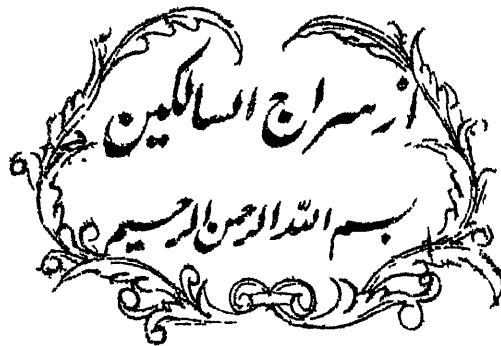 از سراج السالکین
بسم الله الرحمن الرحیم